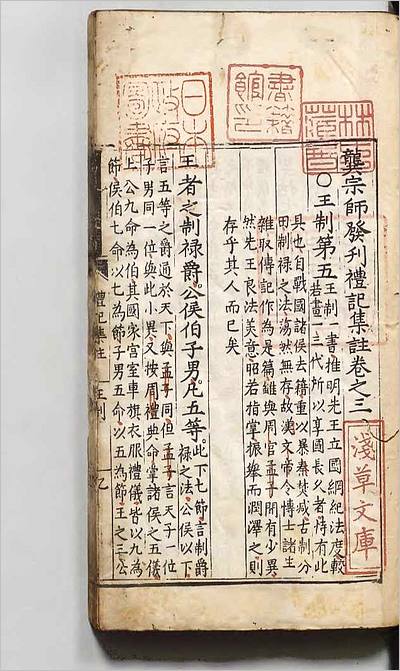 龔宗師發刊禮記集註卷之三
○王制第五
王制一書推明先王立國綱紀法度較
若畫一三代所以享國長久者恃有此
具也自戰國諸侯去籍重以暴秦焚滅古制分
田制祿之法蕩然無存故漢文帝令博士諸生
雜取傳記作為是篇雖與周官孟子間有少異
然先王良法美意昭若指掌振舉而潤澤之則
存乎其人而已矣
王者之制祿爵公侯伯子男凡五等
此下七節言制爵
祿之法公侯以下
言五等之爵通於天下與孟子同但孟子言天子一位
子男同一位與此小異又按周禮典命掌諸侯之五儀
上公九命為伯其國家宮室車旗衣服禮儀皆以九為
節侯伯七命以七為節子男五命以五為節王之三公
禮記集註
王制
淺草文庫
書籍館印
日本政府圖書